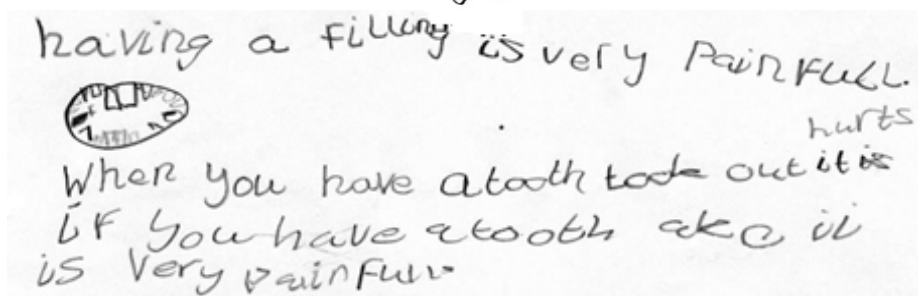 having a filling is very Painfull.
hurts
When you have a tooth took out it is
if you have a tooth ake it
is very painfull